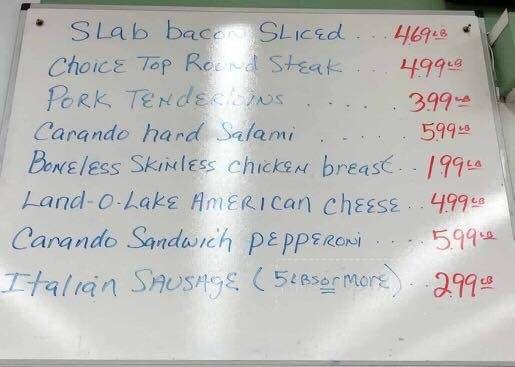 Slab bacon Sliced ... 469 LB
Choice Top Round Steak .... 4.99 LB
Pork Tenderloins ..... 3.99 LB
Carando hard Salami ..... 5.99 LB
Boneless Skinless chicken breast.. 1.99 LB
Land-O-Lake American Cheese.. 4.99 LB
Carando Sandwich pepperoni .... 5.99 LB
Italian Sausage (5 LBS or more) .. 2.99 LB